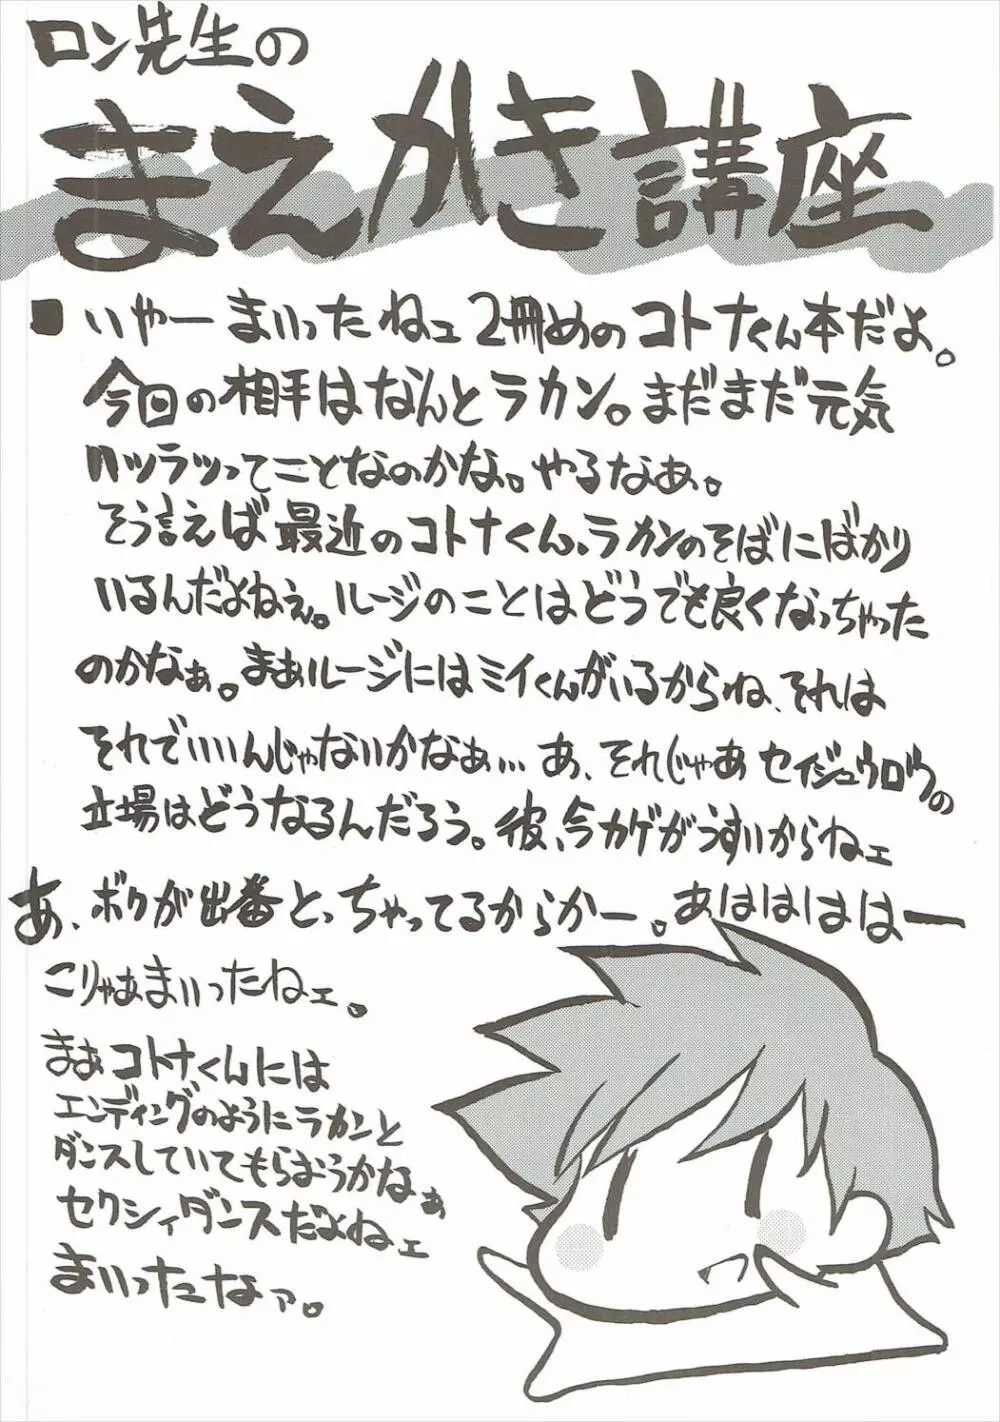 ロン先生の
まえがき講座
■いやーまいったねェ2冊めのコトナくん本だよ。
今回の相手はなんとラカン。まだまだ元気
ハツラツってことなのかな。やるなぁ。
そう言えば最近のコトナくん、ラカンのそばにばかり
いるんだよねぇ。ルージのことはどうでも良くなっちゃった
のかなぁ。まぁルージにはミイくんがいるからね、それは
それでいいんじゃないかなぁ… あ、それじゃあセイジュウロウの
立場はどうなるんだろう。彼、今カゲがうすいからねェ
あ、ボクが出番とっちゃってるからかー。あはははは―
こりゃあまいったねェ。
まぁコトナくんには
エンディングのようにラカンと
ダンスしていてもらおうかなぁ
セクシィダンスだよねェ
まいったなァ。